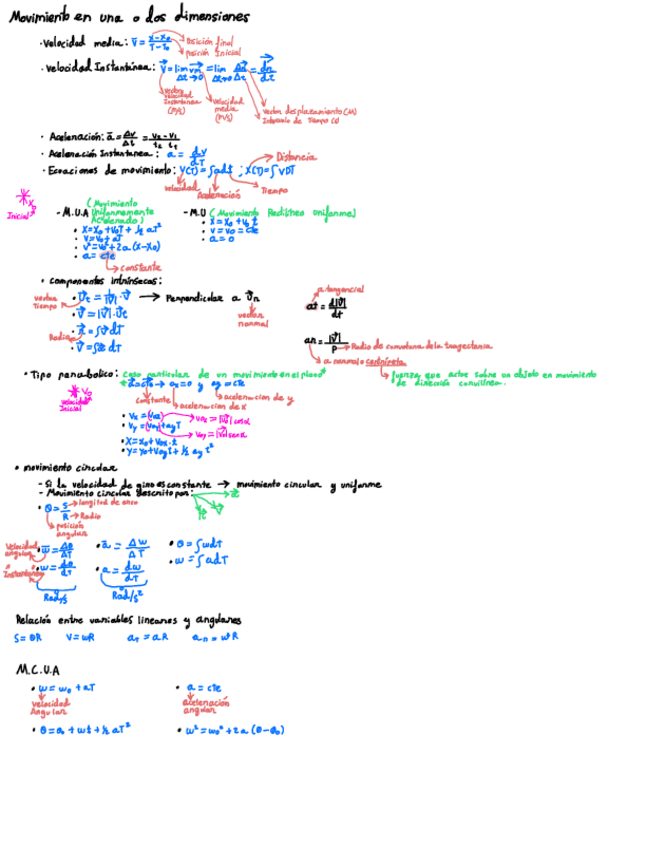 Movimiento en una o dos dimensiones
· Velocidad media: v̄ = x-x₀ / T-t₀
Posición final
Posición Inicial
· Velocidad Instantánea: v⃗ = lim vm = lim Δr⃗/Δt = dr⃗/dt
Δt→0 Δt→0
vector velocidad Instantánea (M/s)
velocidad media (M/s)
Vector desplazamiento (M)
Intervalo de Tiempo (s)
· Aceleración: ā = Δv/Δt = v₂-v₁ / t₂ t₁
· Aceleración Instantanea: a = dv/dT
· Ecuaciones de movimiento: V(T)=∫adt ; X(T)=∫VDT
Distancia
velocidad
Aceleración
Tiempo
* x₀
Inicial
- M.U.A (Movimiento Uniformemente Acelerado)
· X=X₀+V₀T+½ aT²
· V=V₀+aT
· v²=v₀²+2a(x-x₀)
· a= cte
constante
- M.U (Movimiento Rectilíneo uniforme)
· X=X₀+V₀ t
· V=V₀=cte
· a=0
· Componentes intrínsecas:
vector Tiempo
· v⃗t = 1/|v⃗| · v⃗ → Perpendicular a v⃗n
vector normal
· v⃗=|v⃗|·v⃗t
Radio
· r⃗=∫v⃗dT
· v⃗=∫a⃗ dT
a. tangencial
at = d|v⃗|/dt
an = |v⃗|/ρ
Radio de curvatura de la trayectoria
a normal o centrípeta
fuerza que actúa sobre un objeto en movimiento de dirección curvilínea.
· Tipo parabolico: caso particular de un movimiento en el plano
* a⃗=cte → ax=0 y ay=cte
constante
aceleracion de x
aceleracion de y
* v₀
velocidad Inicial
· Vx=(V₀x)
v₀x=|v⃗|cosα
· Vy=(V₀y)+ayT
v₀y=|v⃗₀|senα
· X=x₀+V₀x·t
· Y=y₀+V₀yt+½ ay t²
· movimiento circular
- Si la velocidad de giro es constante → movimiento circular y uniforme
- Movimiento circular descrito por:
· θ = S/R
longitud de arco
Radio
posición angular
Velocidad angular
· w̄ = Δθ/ΔT
Instantánea
· w = dθ/dT
Rad/s
· ā = Δw/ΔT
· a = dw/dT
Rad/s²
· θ=∫wdT
· w=∫adT
Relación entre variables lineares y angulares
S= θR V=wR aₜ=aR aₙ=w²R
M.C.U.A
· w=w₀+aT
velocidad Angular
· a = cte
aceleración angular
· θ=θ₀+wt+½ aT²
· w²=w₀²+2a(θ-θ₀)